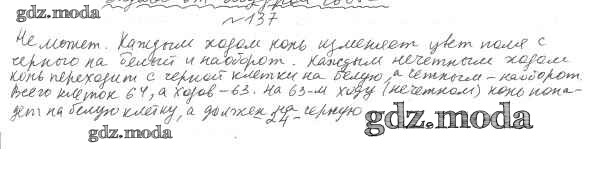 gdz.moda
№137
Не может. Каждым ходом конь изменяет цвет поля с
черного на белый и наоборот. Каждым нечетным ходом
конь переходит с черной клетки на белую, а четным - наоборот.
Всего клеток 64, а ходов - 63. На 63-м ходу (нечетном) конь попа-
дет на белую клетку, а должен на черную
- 24 -
gdz.moda
gdz.moda